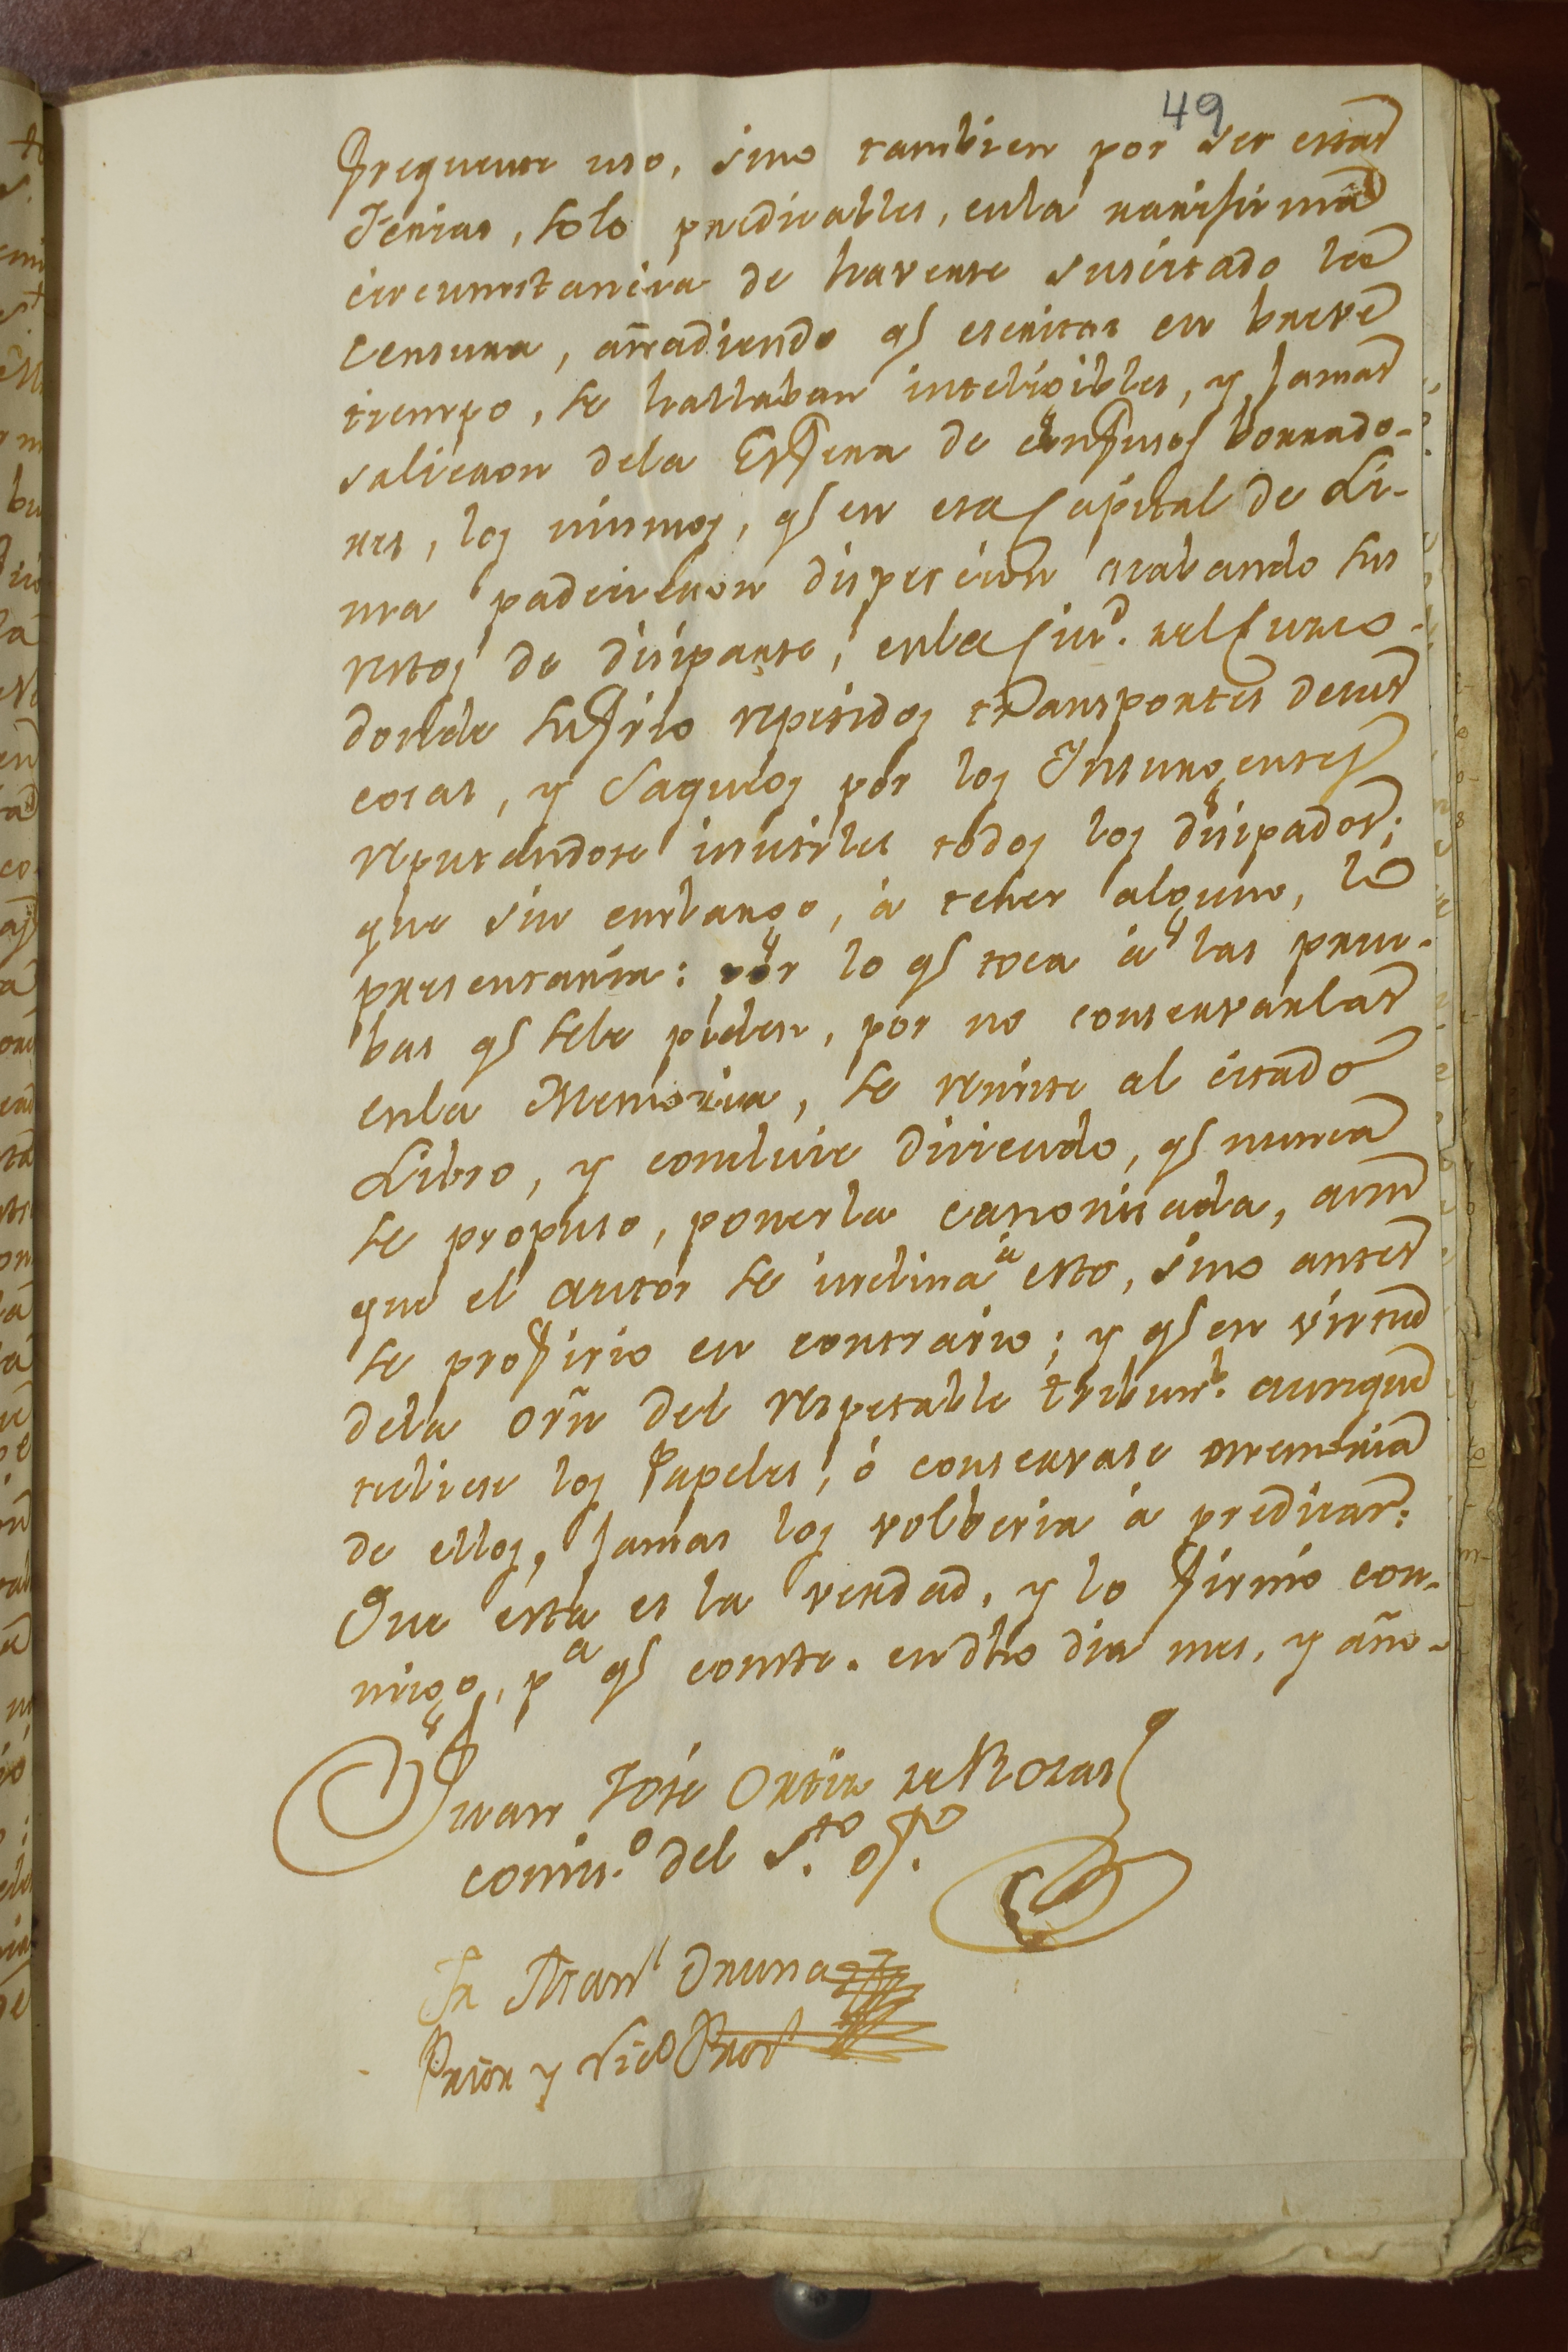 49
frequente uso, sino tambien por ser estas
ferias, solo predicables, enla rarisima
circunstancia de haverse sucitado la
Censura, añadiendo q.e escritas en breve
tiempo, se hallaban inteligibles, y jamas
salieron dela Esfera de confusos borrado-
res, los mismos, q.e en esa Capital de Li-
ma padecieron dispercion acabando sus
restos de disiparse, enla Ciud. del Cuzco.
donde sufrio repetidos transportes desus
cosas, y saqueos por los Insurgentes
reputandose inutiles todos los disipados;
que sin embargo, à tener alguno, lo
presentaria: por lo q.e toca à las prue-
bas q.e sele piden, por no conservarlas
enla Memoria, se remite al citado
Libro, y concluie diciendo, q.e nunca
se propuso, ponerla canonisada, aun
que el autor se inclina à esto, sino antes
se profirio en contrario; y q.e en virtud
dela orñ del respetable tribun.l aunque
tubiese los Papeles, ó conservase memoria
de ellos, jamas los volberia à predicar:
Que esta es la verdad, y lo firmó con-
migo, p.a q.e conste. en dho dia mes, y año-
Juan José Ortiz de Rozas
comis.o del S.to of.o
Fr Man.l
Prior y Vic.o Prov.l